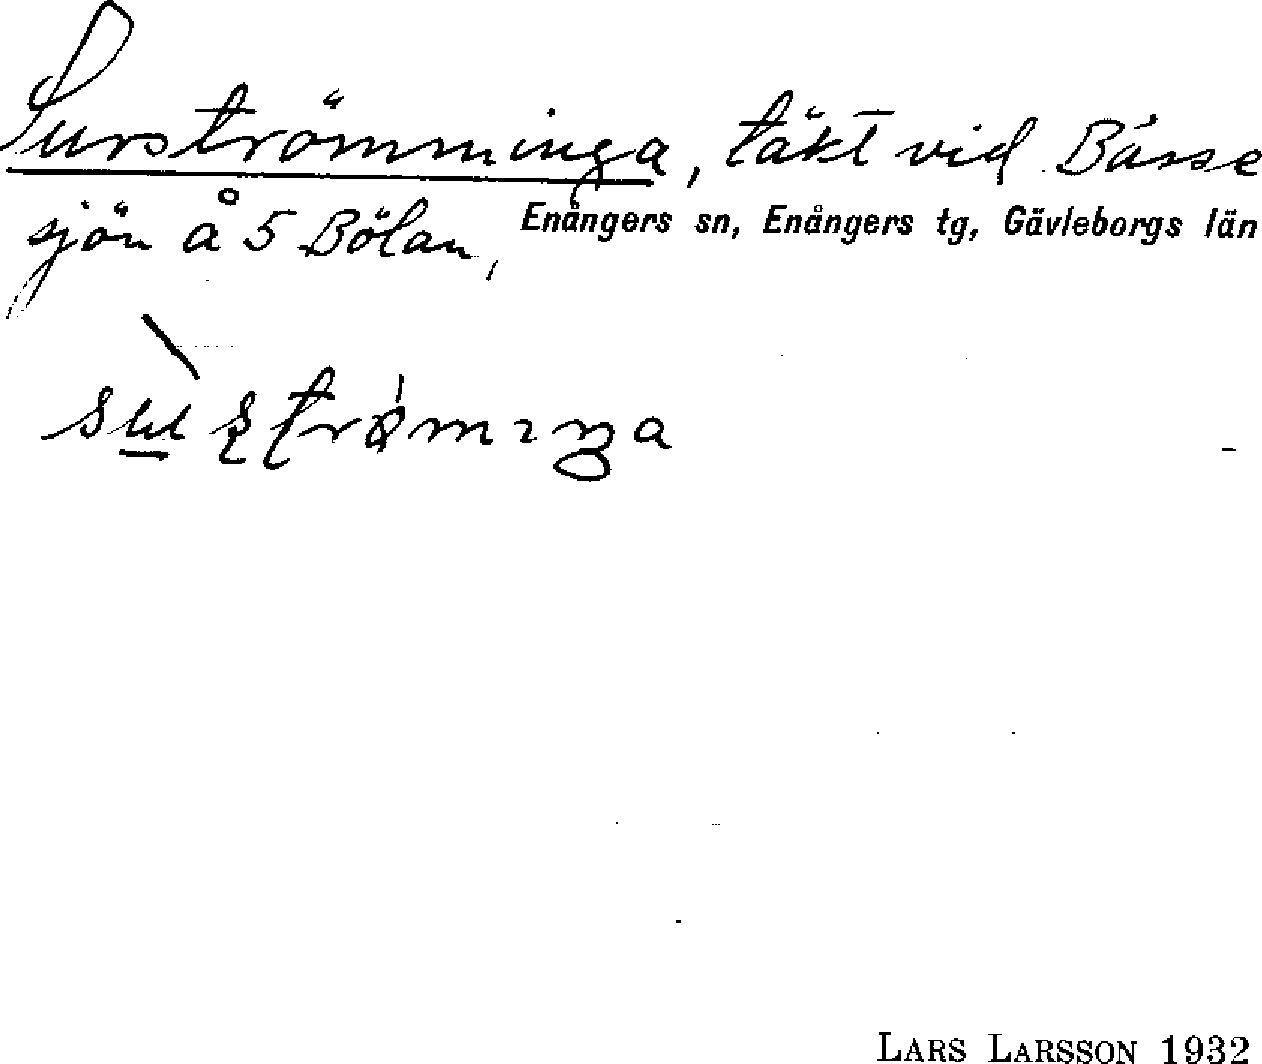 Surströmminga, täkt vid Båsse
sjön å 5 Bölan,
Enångers sn, Enångers tg, Gävleborgs län
LARS LARSSON 1932